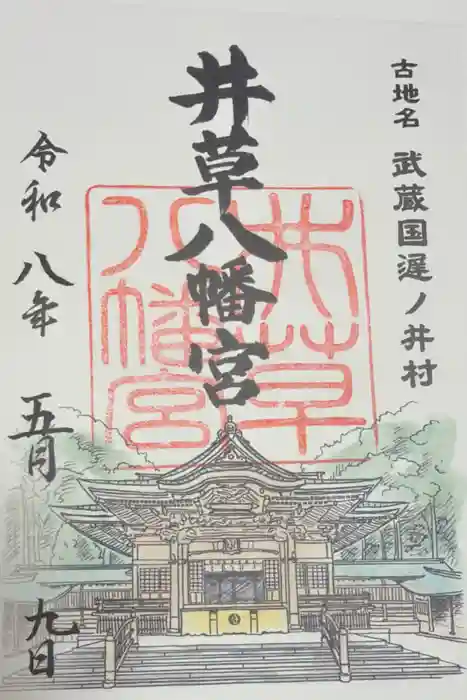 古地名 武蔵国遅ノ井村
井草八幡宮
井草八幡宮
令和八年 五月 九日